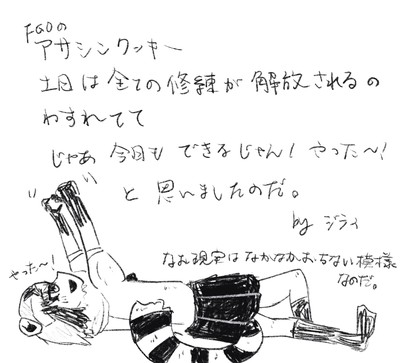 FGOの
アサシンクッキー
土日は全ての修練が解放されるの
わすれてて
じゃあ今日もできるじゃん！やった〜！
と思いましたのだ。
by ジライ
やった〜！
なお現実はなかなかおちない模様
なのだ。